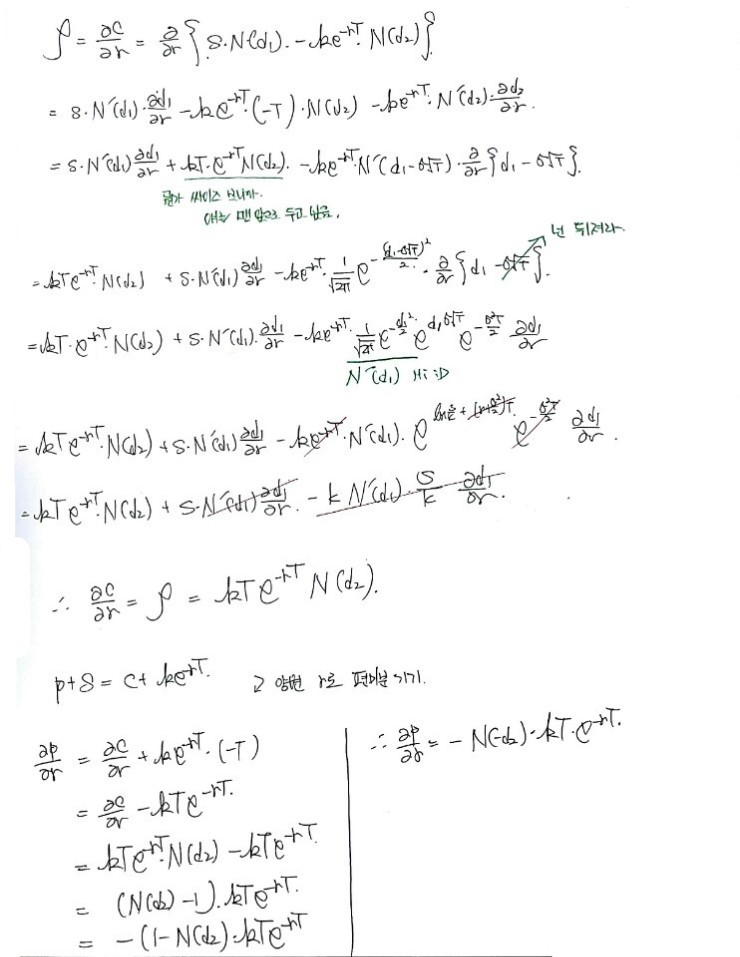 ρ = ∂c/∂r = ∂/∂r { S·N(d₁) - ke^{-rT} N(d₂) }
= S·N'(d₁)·∂d₁/∂r - ke^{-rT}·(-T)·N(d₂) - ke^{-rT}·N'(d₂)·∂d₂/∂r.
= S·N'(d₁) ∂d₁/∂r + kT·e^{-rT} N(d₂). - ke^{-rT} N'(d₁-σ√T)·∂/∂r {d₁ - σ√T}.
싸이즈 보니까.
얘는 맨 앞으로 두고 싶음.
넌 뒤져라.
= kTe^{-rT} N(d₂) + S·N'(d₁) ∂d₁/∂r - ke^{-rT}·1/√2π e^{-(d₁-σ√T)²/2}·∂/∂r {d₁ - σ√T}.
= kT·e^{-rT} N(d₂) + S·N'(d₁)·∂d₁/∂r - ke^{-rT}·1/√2π e^{-d₁²/2} e^{d₁σ√T} e^{-σ²T/2} ∂d₁/∂r
N'(d₁) Hi :D
= kTe^{-rT} N(d₂) + S·N'(d₁) ∂d₁/∂r - ke^{-rT}·N'(d₁)·e^{ln S/k + (r+σ²/2)T} e^{-σ²T/2} ∂d₁/∂r.
= kTe^{-rT} N(d₂) + S·N'(d₁) ∂d₁/∂r. - k N'(d₁)·S/k ∂d₁/∂r.
∴ ∂c/∂r = ρ = kTe^{-rT} N(d₂).
p+S = c+ ke^{-rT}. 양변 r로 편미분
∂p/∂r = ∂c/∂r + ke^{-rT}·(-T)
= ∂c/∂r - kTe^{-rT}.
= kTe^{-rT} N(d₂) - kTe^{-rT}
= (N(d₂) -1)·kTe^{-rT}.
= -(1-N(d₂)·kTe^{-rT}
∴ ∂p/∂r = - N(-d₂)·kT·e^{-rT}.